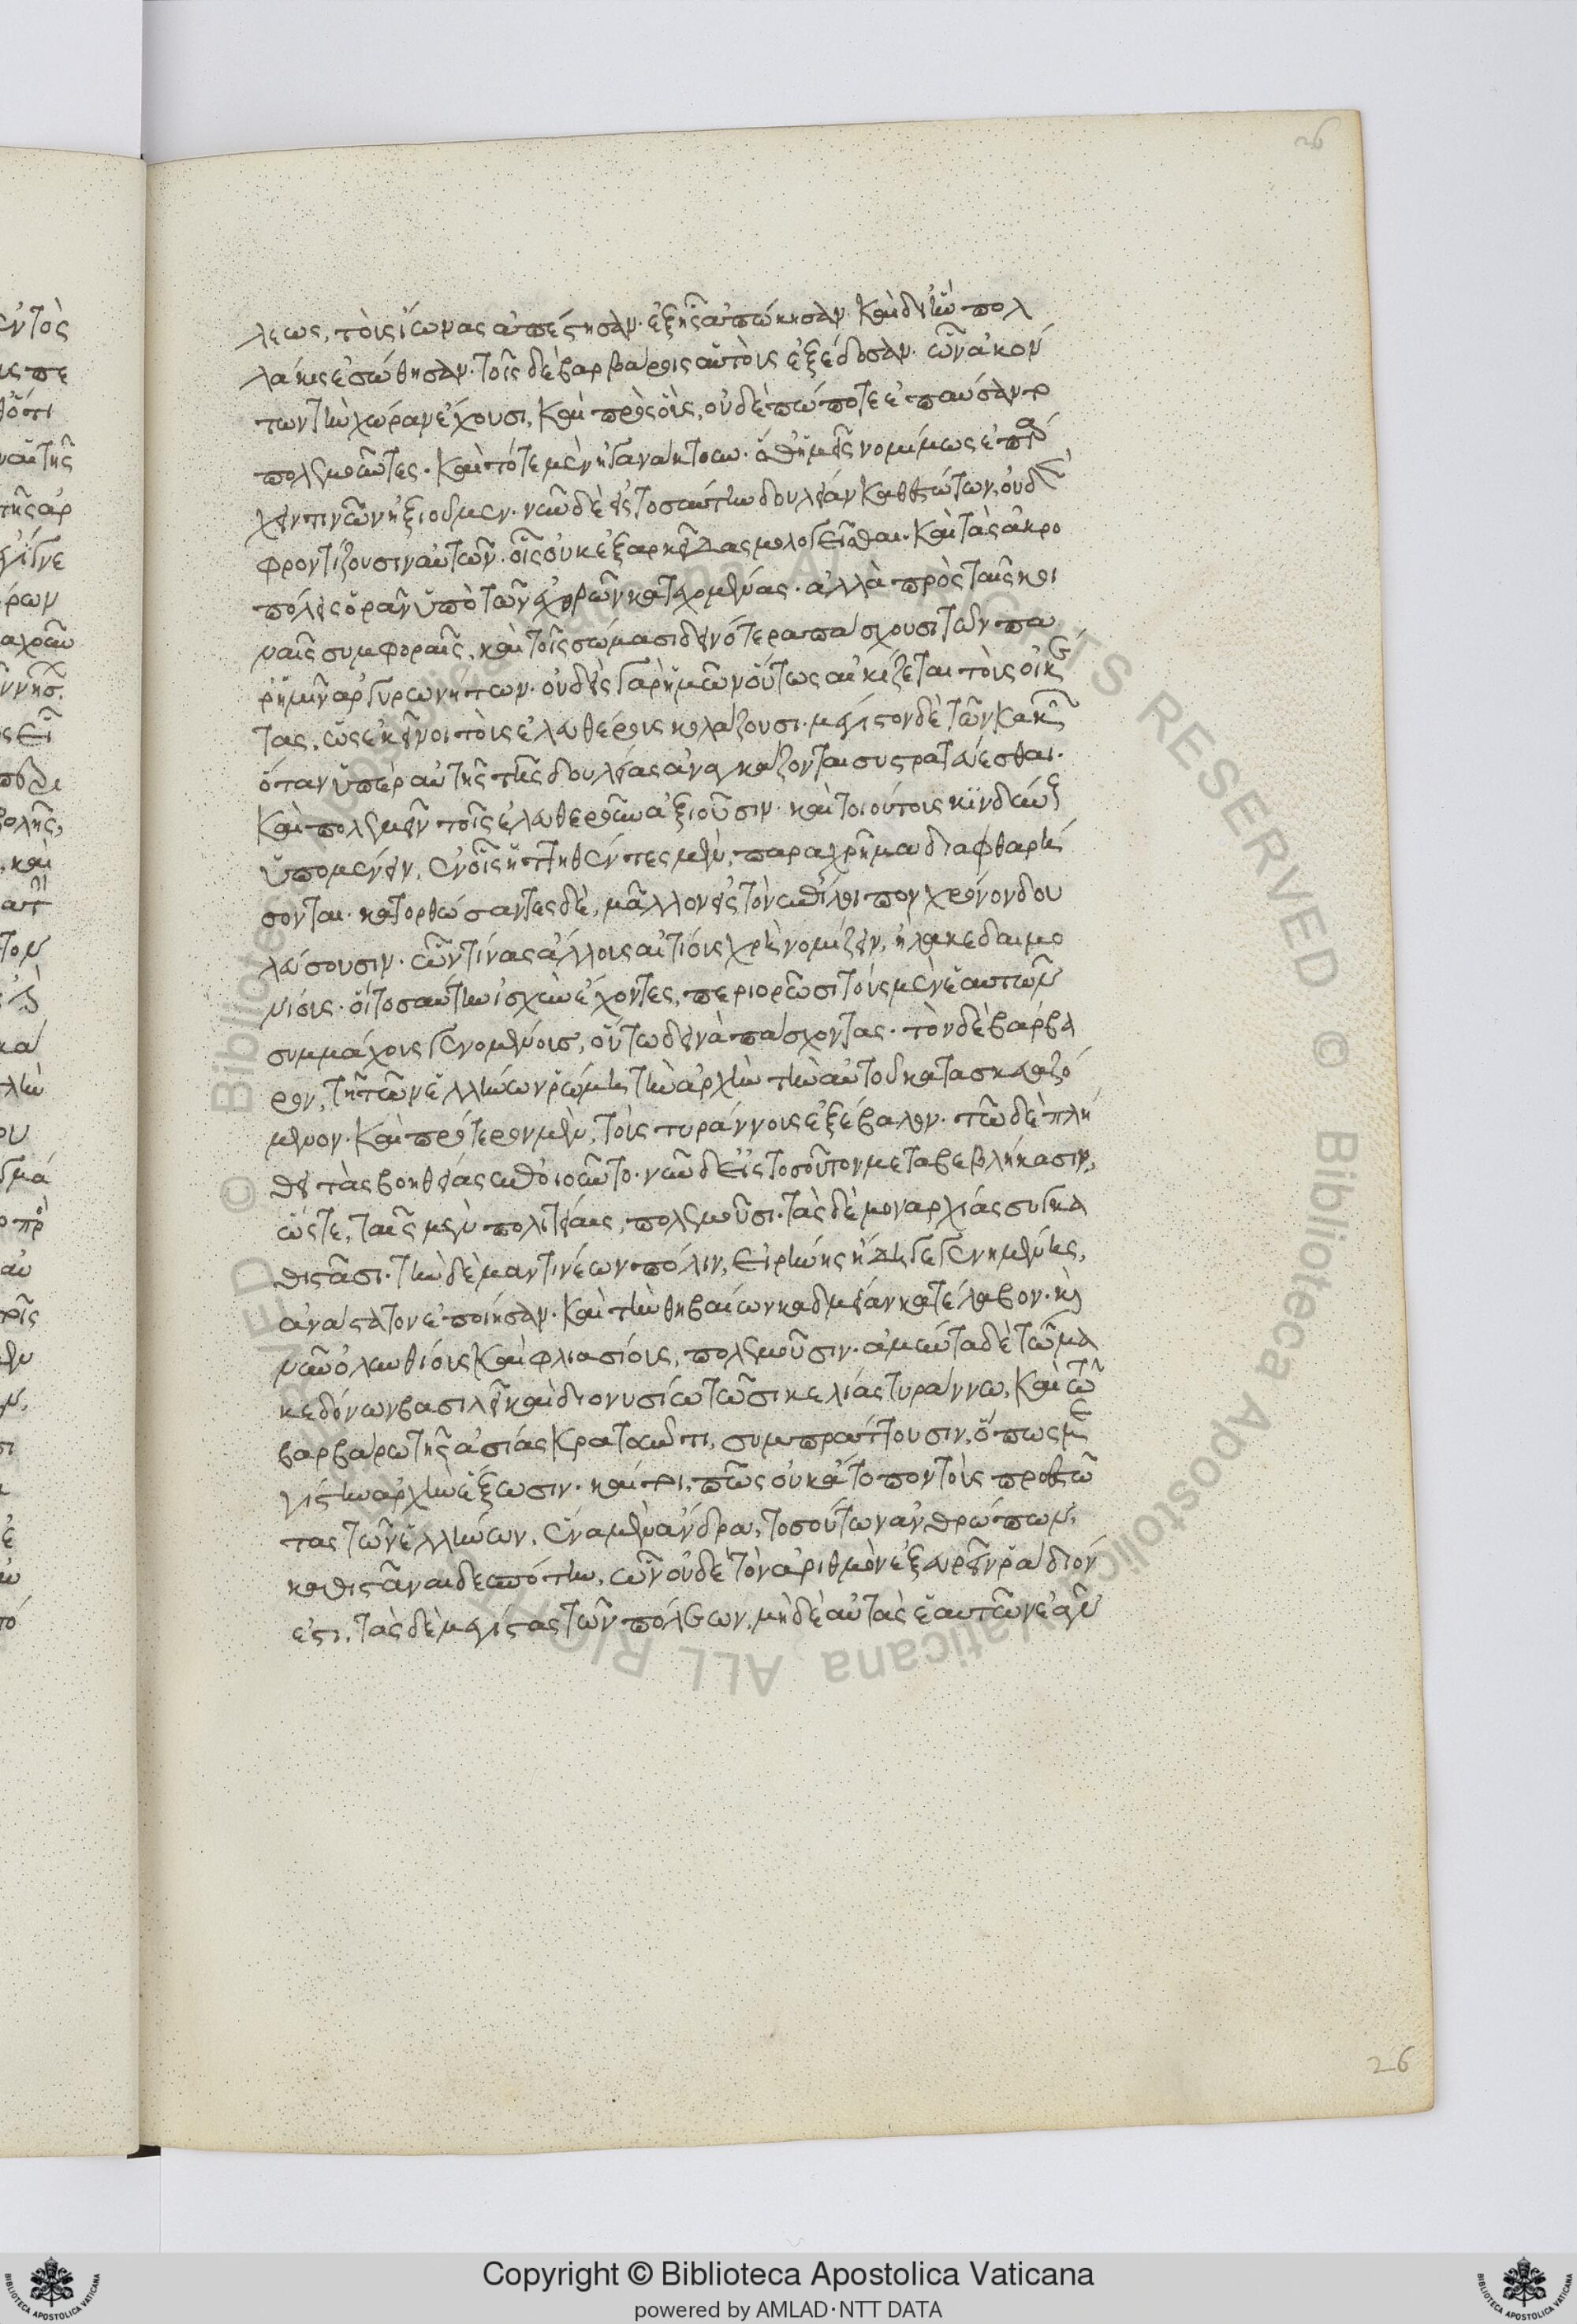 λεως, τοὺς ἴωνας ἀπέστησαν. ἐξ ἧς ἀπώκησαν. καὶ δι' ἣν πολ
λάκις ἐσώθησαν. τοῖς δὲ βαρβάροις αὐτοὺς ἐξέδοσαν. ὧν ἀκόν
των τὴν χώραν ἔχουσι, καὶ πρὸς οὓς, οὐδὲ πώποτε ἐπαύσαντο
πολεμοῦντες. καὶ τότε μὲν ἠγανάκτουν. ὅθ' ἡμεῖς νομίμως ἐπάρ
χειν τινῶν ἠξιοῦμεν. νῦν δὲ εἰς τοσαύτην δουλείαν καθεστώτων, οὐδὲν
φροντίζουσιν αὐτῶν. οἷς οὐκ ἐξαρκεῖ δασμολογεῖσθαι. καὶ τὰς ἀκρο
πόλεις ὁρᾶν ὑπὸ τῶν ἐχθρῶν κατεχομένας. ἀλλὰ πρὸς ταῖς κοι
ναῖς συμφοραῖς, καὶ τοῖς σώμασι δεινότερα πάσχουσι τῶν πα
ρ' ἡμῖν ἀργυρωνήτων. οὐδεὶς γὰρ ἡμῶν οὕτως αἰκίζεται τοὺς οἰκέ
τας, ὡς ἐκεῖνοι τοὺς ἐλευθέρους κολάζουσι. μέγιστον δὲ τῶν κακῶν
ὅταν ὑπὲρ αὐτῆς τῆς δουλείας ἀναγκάζονται συστρατεύεσθαι.
καὶ πολεμεῖν τοῖς ἐλευθεροῦν ἀξιοῦσιν. καὶ τοιούτους κινδύνους
ὑπομένειν, ἐν οἷς ἡττηθέντες μὲν, παραχρῆμα διαφθαρή
σονται. κατορθώσαντες δὲ, μᾶλλον εἰς τὸν ἐπίλοιπον χρόνον δου
λεύσουσιν. ὧν τίνας ἄλλους αἰτίους χρὴ νομίζειν, ἢ λακεδαιμο
νίους. οἳ τοσαύτην ἰσχὺν ἔχοντες, περιορῶσι τοὺς μὲν ἑαυτῶν
συμμάχους γενομένους, οὕτω δεινὰ πάσχοντας. τὸν δὲ βάρβα
ρον, τῇ τῶν ἑλλήνων ῥώμῃ τὴν ἀρχὴν τὴν αὑτοῦ κατασκευαζό
μενον. καὶ πρότερον μὲν, τοὺς τυράννους ἐξέβαλον. τῶ δὲ πλή
θει τὰς βοηθείας ἐποιοῦντο. νῦν δ' εἰς τοσοῦτον μεταβεβλήκασιν,
ὥστε, ταῖς μὲν πολιτείαις, πολεμοῦσι. τὰς δὲ μοναρχίας συγκα
θιστᾶσι. τὴν δὲ μαντινέων πόλιν, εἰρήνης ἤδη γεγενημένης,
ἀνάστατον ἐποίησαν. καὶ τὴν θηβαίων καδμείαν κατέλαβον. καὶ
νῦν ὀλυνθίοις καὶ φλιασίοις, πολεμοῦσιν. ἀμύντα δὲ τῶ μα
κεδόνων βασιλεῖ καὶ διονυσίω τῶ σικελίας τυράννω, καὶ τῶ
βαρβάρω τῆς ἀσίας κρατοῦντι, συμπράττουσιν, ὅπως με
γίστην ἀρχὴν ἕξωσιν. καίτοι, πῶς οὐκ ἄτοπον τοὺς προεστῶ
τας τῶν ἑλλήνων, ἕνα μὲν ἄνδρα, τοσούτων ἀνθρώπων,
καθιστάναι δεσπότην, ὧν οὐδὲ τὸν ἀριθμὸν ἐξευρεῖν ῥάδιόν
ἐστι. τὰς δὲ μεγίστας τῶν πόλεων, μὴ δὲ αὐτὰς ἑαυτῶν ἐᾶν
26
Copyright © Biblioteca Apostolica Vaticana
powered by AMLAD·NTT DATA